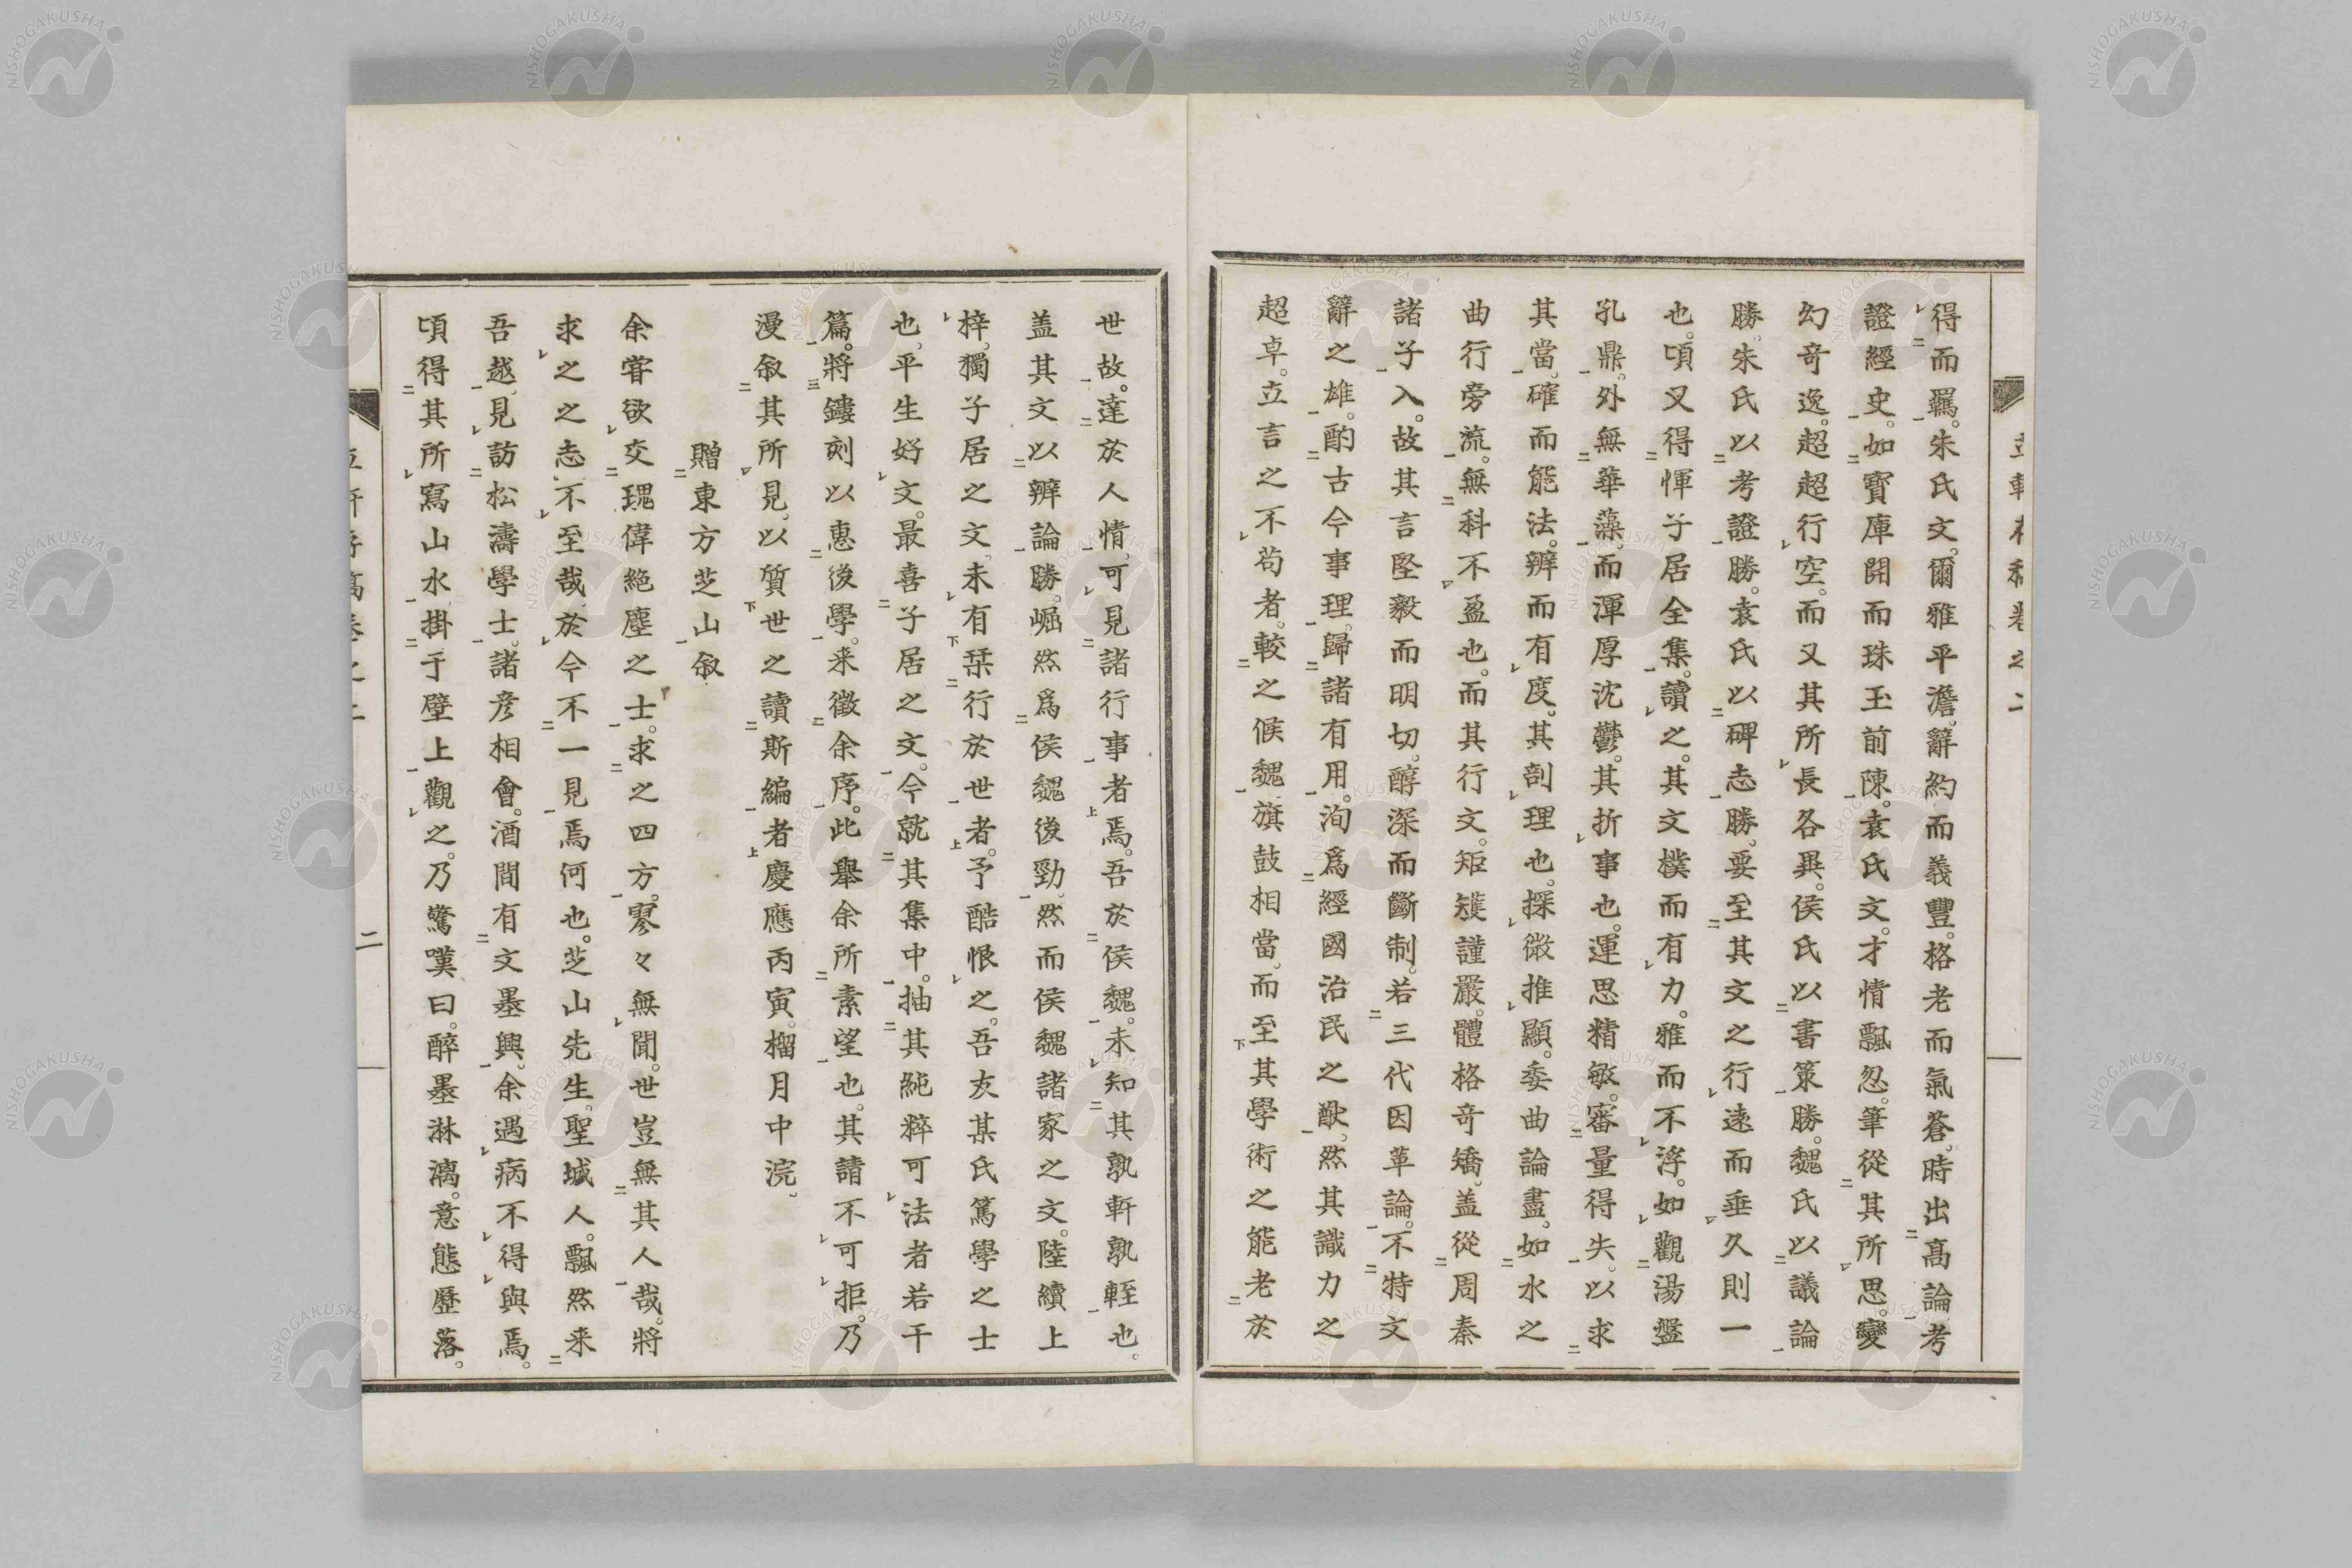 得而羈。朱氏文、爾雅平澹、辭約而義豐。格老而氣蒼、時出高論考
證經史。如寶庫開而珠玉前陳。袁氏文、才情飄忽、筆從其所思。變
幻奇逸。超超行空。而又其所長各異。侯氏以書策勝。魏氏以議論
勝、朱氏以考證勝。袁氏以碑志勝、要至其文之行遠而垂久則一
也。頃又得惲子居全集。讀之。其文樸而有力。雅而不浮。如觀湯盤
孔鼎。外無華藻、而渾厚沈鬱。其折事也。運思精敏。審量得失、以求
其當。確而能法。辨而有度。其剖理也。探微推顯。委曲論盡、如水之
曲行旁流。無科不盈也。而其行文。矩矱謹嚴。體格奇矯。盖從周秦
諸子入。故其言堅毅而明切。醇深而斷制。若三代因革論。不特文
辭之雄。酌古今事理。歸諸有用。洵爲經國治民之猷、然其識力之
超卓。立言之不苟者。較之侯魏旗鼓相當。而至其學術之能老於
世故。達於人情、可見諸行事者焉。吾於侯魏。未知其孰軒孰輊也。
盖其文以辨論勝。崛然爲侯魏後勁、然而侯魏諸家之文。陸續上
梓。獨子居之文、未有栞行於世者。予酷恨之。吾友某氏篤學之士
也、平生好文。最喜子居之文。今就其集中。抽其純粹可法者若干
篇。將鏤刻以惠後學。来徵余序。此舉余所素望也。其請不可拒。乃
漫敘其所見、以質世之讀斯編者慶應丙寅。榴月中浣、
贈東方芝山敘
余嘗欲交瑰偉絶塵之士。求之四方。寥々無聞。世豈無其人哉。將
求之之志、不至哉、於今不一見焉何也。芝山先生、聖城人。飄然来
吾越、見訪松濤學士。諸彦相會。酒間有文墨興。余遇病不得與焉。
頃得其所寫山水、掛于壁上觀之。乃驚嘆曰。醉墨淋漓。意態歷落。
二